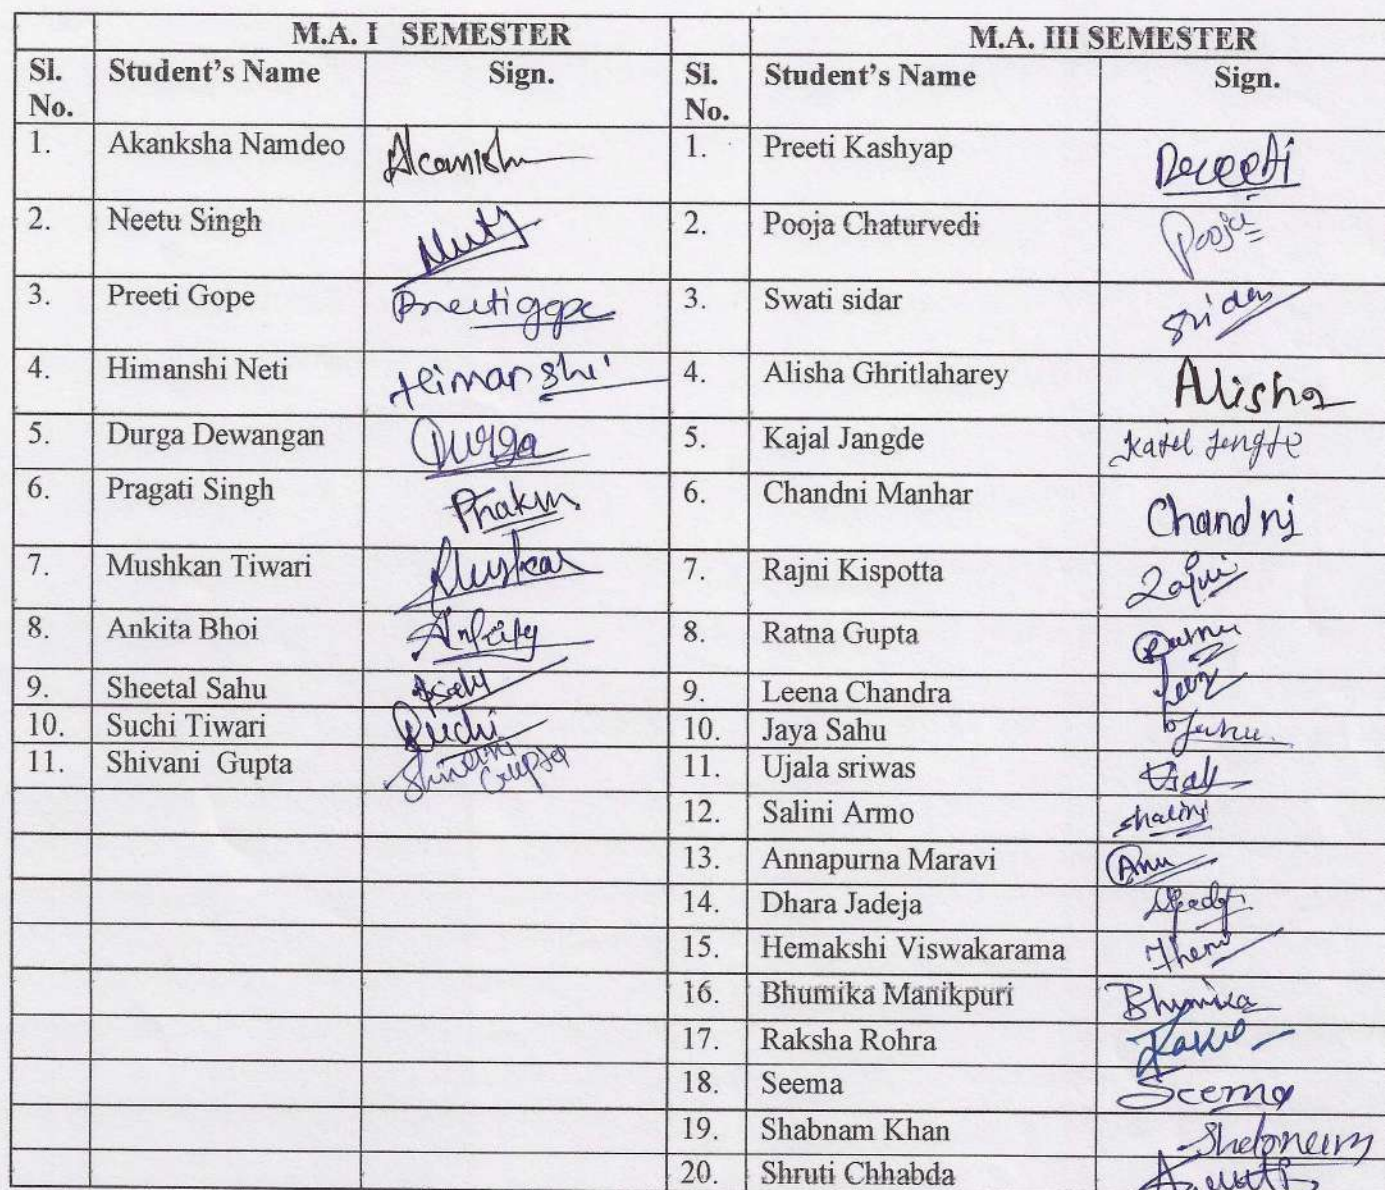 M.A. I SEMESTER M.A. III SEMESTER
Sl. Student's Name Sign. Sl. Student's Name Sign.
No. No.
1. Akanksha Namdeo 1. Preeti Kashyap
2. Neetu Singh 2. Pooja Chaturvedi Pooja
3. Preeti Gope Preeti gope 3. Swati sidar Sidar
4. Himanshi Neti Himanshi 4. Alisha Ghritlaharey Alisha
5. Durga Dewangan Durga 5. Kajal Jangde
6. Pragati Singh 6. Chandni Manhar Chandni
7. Mushkan Tiwari 7. Rajni Kispotta Rajni
8. Ankita Bhoi 8. Ratna Gupta
9. Sheetal Sahu 9. Leena Chandra
10. Suchi Tiwari 10. Jaya Sahu
11. Shivani Gupta Shivani Gupta 11. Ujala sriwas
12. Salini Armo Shalini
13. Annapurna Maravi Anu
14. Dhara Jadeja
15. Hemakshi Viswakarama
16. Bhumika Manikpuri Bhumika
17. Raksha Rohra
18. Seema Seema
19. Shabnam Khan
20. Shruti Chhabda